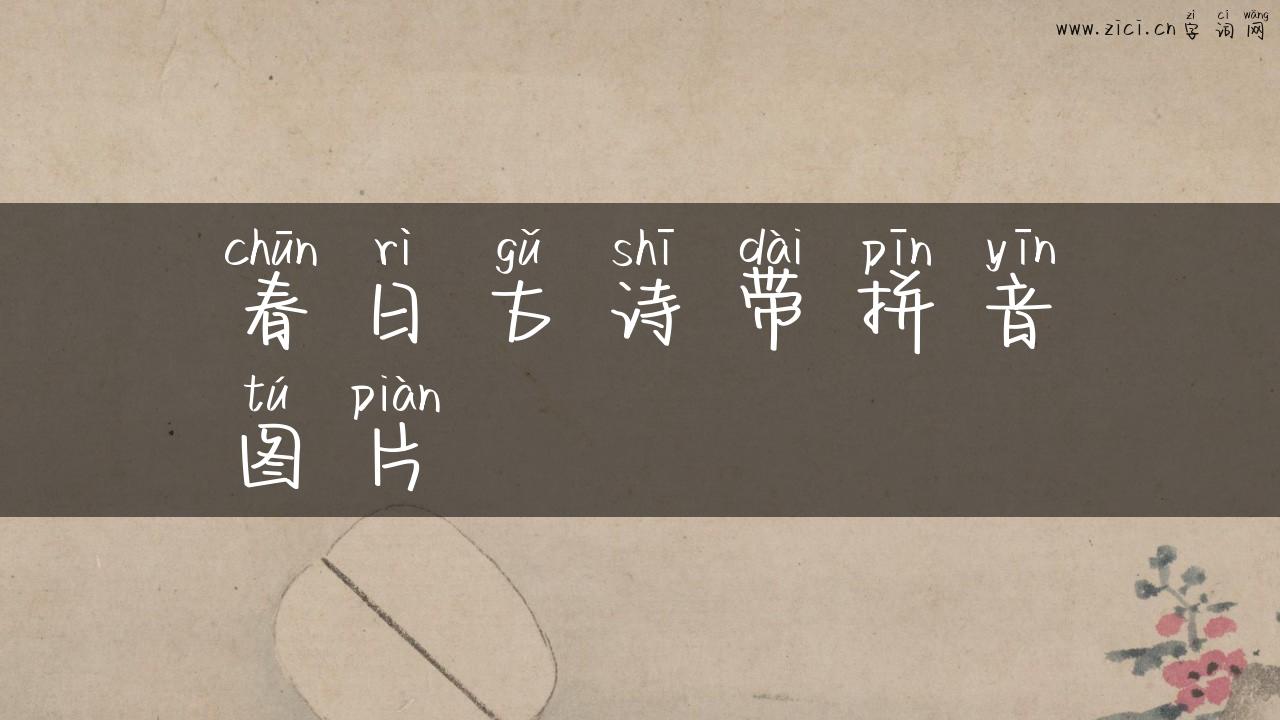 zì cí wǎng
www.zici.cn 字词网
chūn rì gǔ shī dài pīn yīn
春日古诗带拼音
tú piàn
图片